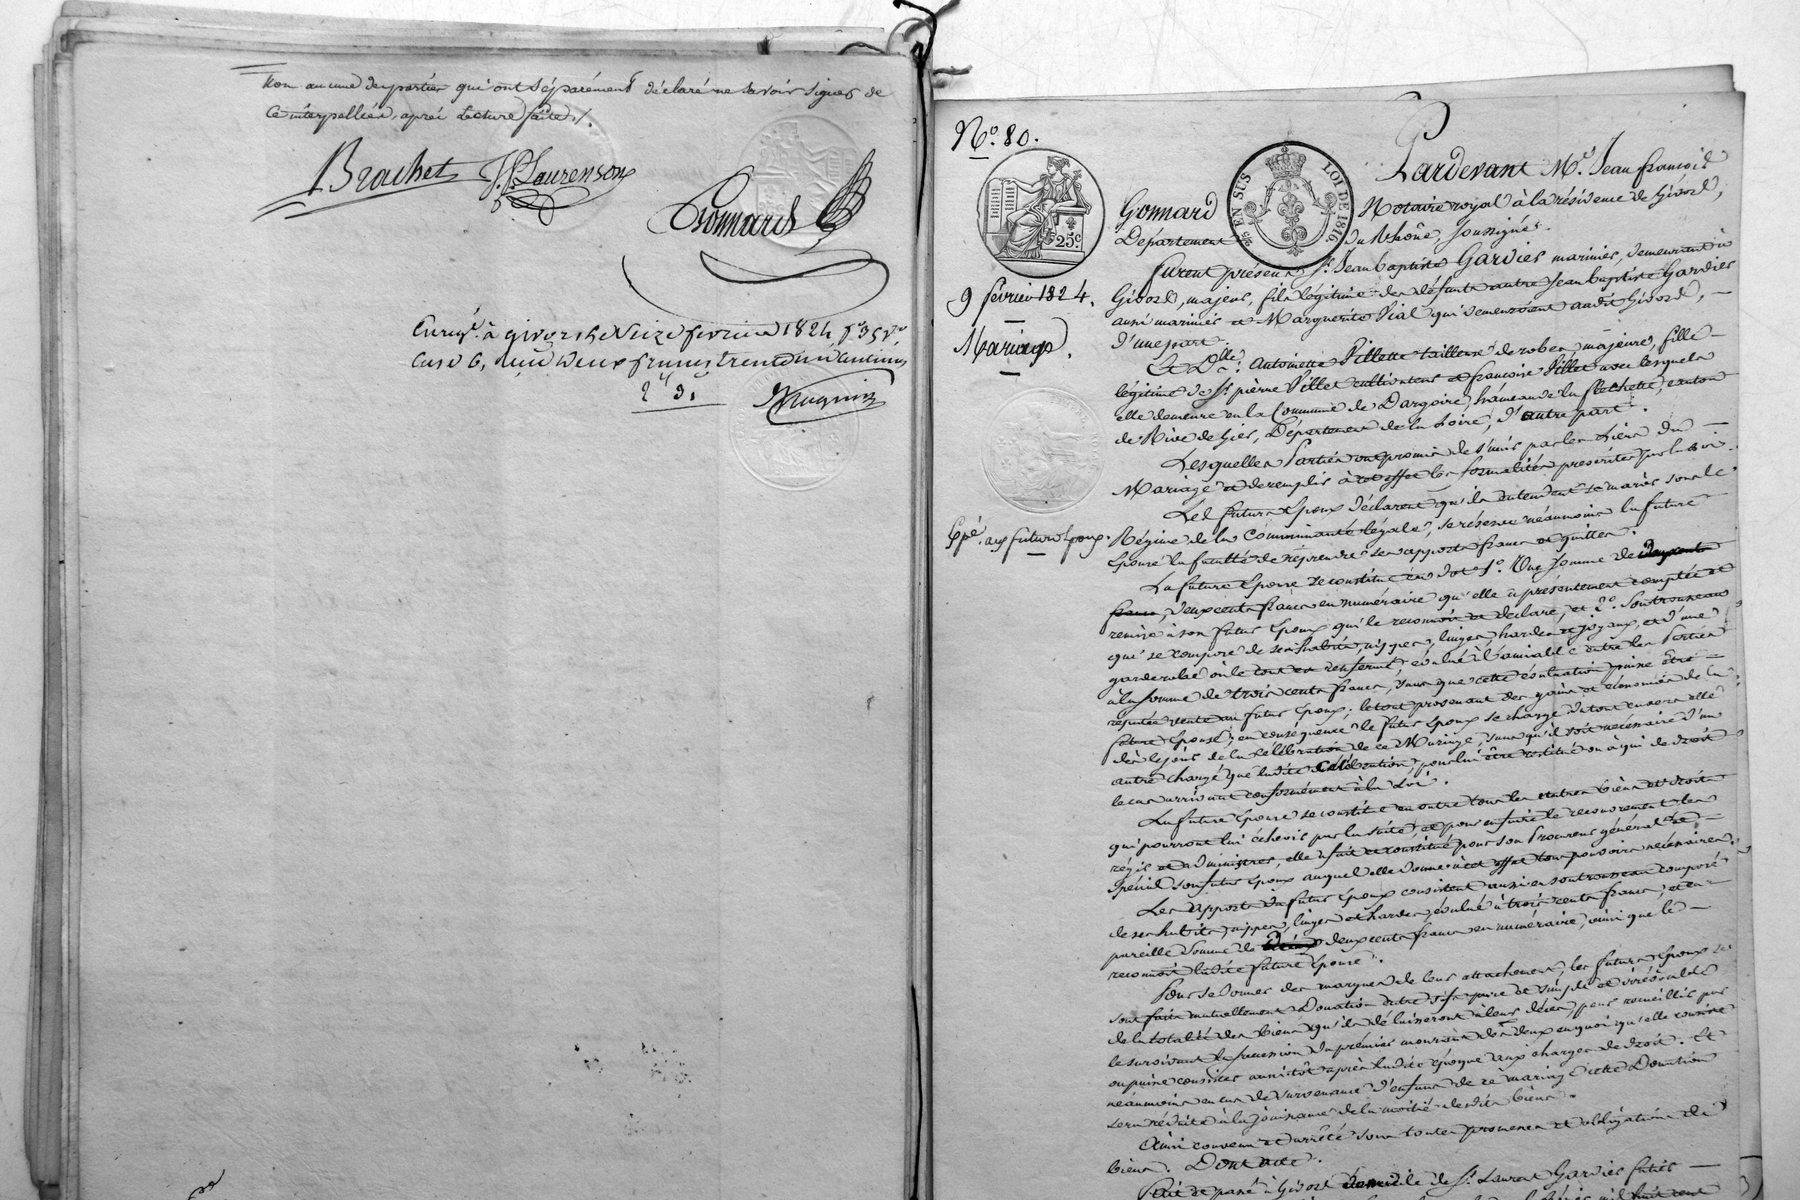 Non aucune des parties qui ont séparément déclaré ne savoir signer de
ce interpellées, après Lecture faite /.
Brachet J. P. Laurenson
Gonnard
Enreg.é à givors le Seize fevrier 1824, f.o 35 v.o
case 6, reçu deux francs
N.o 80.
25c
25 EN SUS LOI DE 1816
9 février 1824.
Mariage.
Epé. aux futurs Epoux.
Pardevant M.e Jean François
Gonnard Notaire royal à la résidence de Givors,
Département du Rhône, soussigné.
Furent présens S.r Jean baptiste Gardies marinier, demeurant à
Givors, majeur, fils légitime des défunts autre Jean baptiste Gardies
aussi marinier et Marguerite Vial qui demeuroient audit Givors, —
d'une part.
Et D.lle Antoinette Pillet tailleuse de robes, majeure, fille —
légitime de S.r pierre Pillet cultivateur et françoise Pillet avec lesquels
elle demeure en la Commune de Dargoire, hameau de la canton
de Rive de Gier, Département de la Loire, d'autre part.
Lesquelles Parties ont promis de s'unir par les liens du —
Mariage et de remplir à cet effet les formalités prescrites par la loi.
Les futurs Epoux déclarent qu'ils entendent se marier sous le
Régime de la Communauté légale, se réserve néanmoins la future
Epouse la faculté de reprendre ses apports francs et quittes.
La future Epouse se constitue en dot 1.o Une somme de
deux cents francs en numéraire qu'elle a présentement comptée et
remise à son futur Epoux qui le reconnoit et déclare, et 2.o Son trousseau
qui se compose de ses habits, nippes, linges, hardes et joyaux, et d'une
garderobe où le tout est renfermé, évalué à l'amiable entre les Parties
à la somme de trois cents francs, sans que cette évaluation puisse être —
réputée vente au futur Epoux; le tout provenant des gains et économies de la
future Epouse; en conséquence le futur Epoux se charge du tout envers elle
dès le jour de la célébration de ce Mariage, sans qu'il soit nécessaire d'un
autre chargé que ladite célébration, pour lui être restitué ou à qui de droit
le cas arrivant conformément à la Loi.
La future Epouse se constitue en outre tous les autres biens et droits
qui pourront lui échoir par la suite, et pour en faire le recouvrement les
régir et administrer, elle a fait et constitué pour son Procureur général et
spécial son futur Epoux auquel elle donne à cet effet tous pouvoirs nécessaires.
Les apports du futur Epoux consistent aussi en son trousseau composé
de ses habits, nippes, linges et hardes, évalué à trois cents francs, et en —
pareille somme de deux cents francs en numéraire, ainsi que le —
reconnoit ladite future Epouse.
Pour se donner des marques de leur attachement, les futurs Epoux se
sont faits mutuellement Donation entre vifs pure et simple et irrévocable
de la totalité des biens qu'ils délaisseront à leur décès, pour recueillir par
le survivant la succession du premier mourant d'eux deux en quoi qu'elle consiste
ou puisse consister aussitôt après ladite époque aux charges de droit. Et
néanmoins en cas de survenance d'enfans de ce mariage cette Donation
sera réduite à la jouissance de la moitié desdits biens.
Ainsi convenu et arrêté sous toutes promesses et obligations de
biens. Dont acte.
Fait et passé à Givors domicile de S.r Laurent Gardies